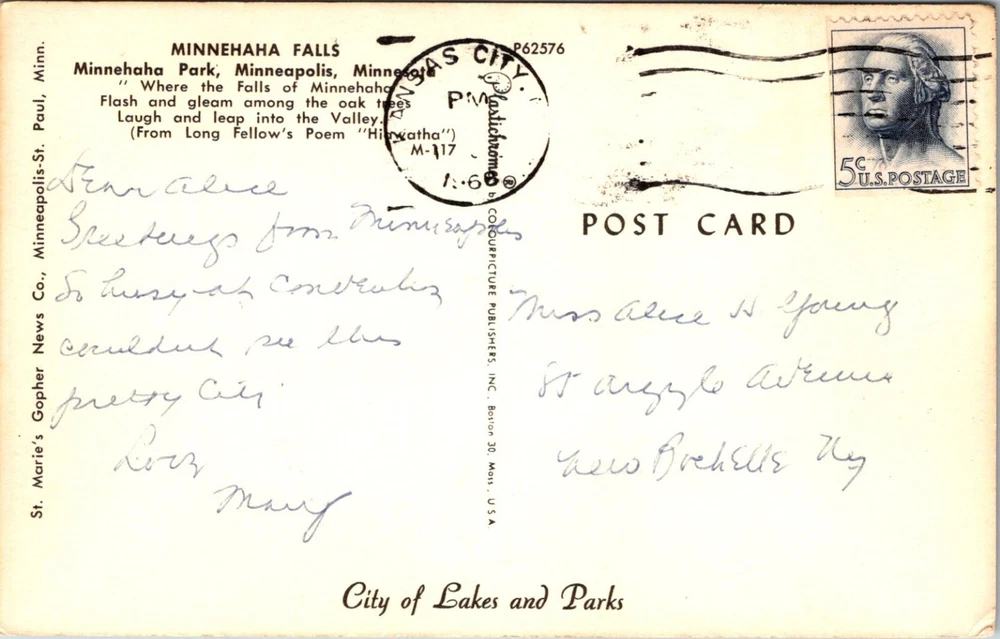 MINNEHAHA FALLS
Minnehaha Park, Minneapolis, Minnesota
" Where the Falls of Minnehaha
Flash and gleam among the oak trees
Laugh and leap into the Valley.
(From Long Fellow's Poem "Hiawatha")
M-117
P62576
KANSAS CITY.
PM
1966
5c U.S.POSTAGE
POST CARD
St. Marie's Gopher News Co., Minneapolis-St. Paul, Minn.
Plastichrome®
by COLOURPICTURE PUBLISHERS, INC. Boston 30, Mass., U S A
Dear Alice
Greetings from Minneapolis
So busy at convention
couldnt see this
pretty City
Love
Mary
Miss Alice H Young
85 Argyle Avenue
New Rochelle Ny
City of Lakes and Parks